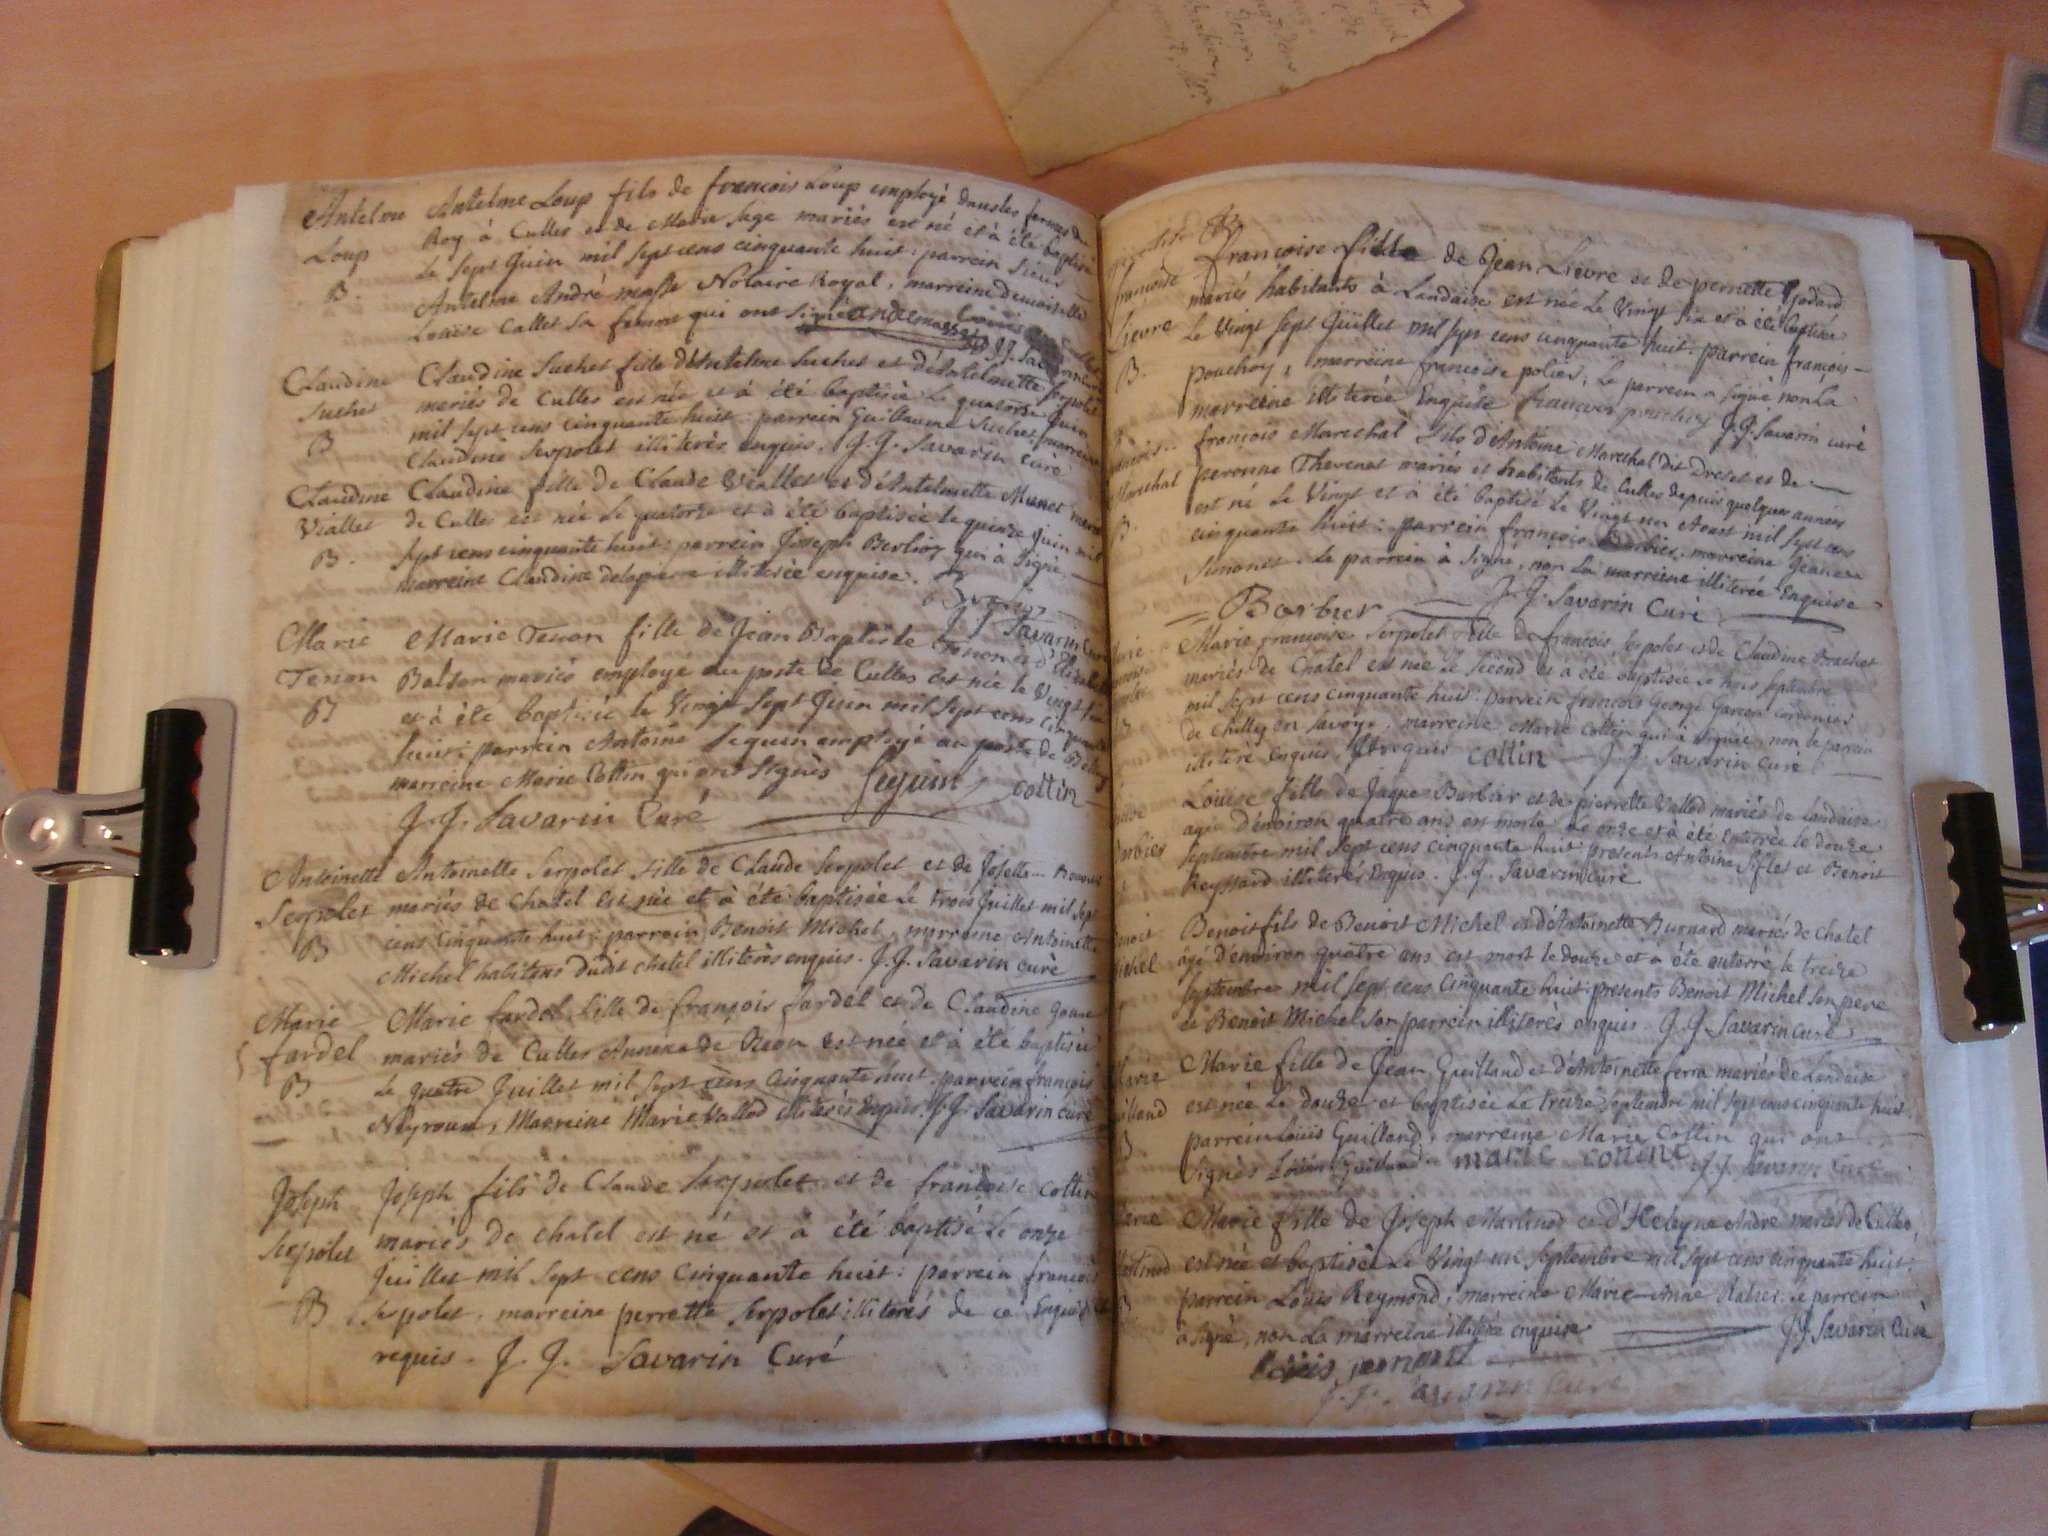 Antelme
Loup
B.
Antelme Loup fils de françois Loup employé dans les fermes du
Roy à Culles et de Marie Sage mariés est né et à été baptisé
Le sept Juin mil sept cens cinquante huit: parrein sieur
Antelme André masse Notaire Royal, marreine demoiselle
Louise Callet sa femme qui ont signé andremasse
J.J. Savarin
Claudine
Suchet
B
Claudine Suchet fille d'Antelme Suchet et d'Antelmette Serpolet
mariés de Culles est née et à été baptisée le quatorze Juin
mil sept cens cinquante huit: parrein Guillaume Suchet, marreine
Claudine Serpolet illiterés enquis. J.J. Savarin curé
Claudine
Viallet
B.
Claudine fille de Claude Viallet et d'Antelmette Munet
de Culles est née le quatorze et à été baptisée le quinze Juin mil
sept cens cinquante huit: parrein Joseph Berlioz qui à signé
marreine Claudine delapierre illiterée enquise.
J.J. Savarin Curé
Marie
Tenon
B
Marie Tenon fille de Jean Baptiste Tenon et d'
mariés employé au poste de Culles est née le Vingt
et à été baptisée le Vingt Sept Juin mil sept cens cinquante
huit: parrein Antoine Seguin employé au poste de
marreine Marie Cottin qui ont signés Seguin cottin
J.J. Savarin Curé
Antoinette
Serpolet
B
Antoinette Serpolet fille de Claude Serpolet et de Josette
mariés de Chatel est née et à été baptisée Le trois Juillet mil sept
cens cinquante huit: parrein Benoit Michel, marreine Antoinette
Michel habitans dudit chatel illiterés enquis. J.J. Savarin curé
Marie
fardel
B
Marie fardel fille de françois fardel et de Claudine
mariés de Culles Annexe de est née et à été baptisée
Le quatre Juillet mil sept cens cinquante huit. parrein françois
Neyroux, Marreine Marie Vallod illiterés enquis. J.J. Savarin curé
Joseph
Serpolet
B
Joseph fils de Claude Serpolet et de françoise Cottin
mariés de chatel est né et à été baptisé Le onze
Juillet mil sept cens cinquante huit: parrein françois
Serpolet, marreine perrette Serpolet illiterés de ce Enquis
requis. J. J. Savarin Curé
françoise
Lievre
B.
françoise fille de Jean Lievre et de pernette Godard
mariés habitants à Landaise est née Le Vingt six et à été baptisée
Le Vingt sept Juillet mil sept cens cinquante huit. parrein françois
pouchoy, marreine françoise polier, Le parrein a signé non La
marreine illiterée Enquise francois pouchoy J.J. Savarin curé
Marechal
B.
françois Marechal fils d'Antoine Marechal dit Dreset et de
perronne Thevenot mariés et habitants de Culles depuis quelques années
est né Le Vingt et à été baptisé Le Vingt un Aoust mil sept cens
cinquante huit: parrein françois Barbier, marreine
Simonet. Le parrein à signé, non La marreine illiterée Enquise
Barbier J.J. Savarin Curé
Marie françoise Serpolet fille de françois Serpolet et de Claudine Brachet
mariés de Chatel est née Le second et à été baptisée Le trois septembre
mil sept cens cinquante huit: parrein francois George Garcon cordonier
de Chilly en Savoye. marreine Marie Cottin qui à signée, non le parrein
illiteré enquis, et requis cottin J.J. Savarin curé
Louise fille de Jaques Barbier et de pierrette Vallod mariés de Landaise
agée d'environ quatre ans est morte Le onze et à été enterrée le douze
septembre mil sept cens cinquante huit: presents Antoine Siflet et Benoit
Reyssard illiterés enquis. J.J. Savarin curé
Benoit fils de Benoit Michel et d'Antoinette Burnard mariés de chatel
âgé d'environ quatre ans est mort le douze et a été enterré le treize
septembre mil sept cens cinquante huit: presents Benoit Michel son pere
et Benoit Michel son parrein illiterés enquis. J.J. Savarin curé
Marie
Marie fille de Jean Guilland et d'Antoinette ferra mariés de Landaise
est née Le douze et baptisée Le treize septembre mil sept cens cinquante huit.
parrein Louis Guilland, marreine Marie Cottin qui ont
signés Louis Guilland marie cottin J.J. Savarin curé
Marie
B
Marie fille de Joseph Martinod et d'Heleyne André mariés de Culles
est née et baptisée Le Vingt un Septembre mil sept cens cinquante huit.
parrein Louis Reymond, marreine Marie Anne. Le parrein
a signé, non La marreine illiterée enquise J.J. Savarin Curé
J.J. Savarin curé